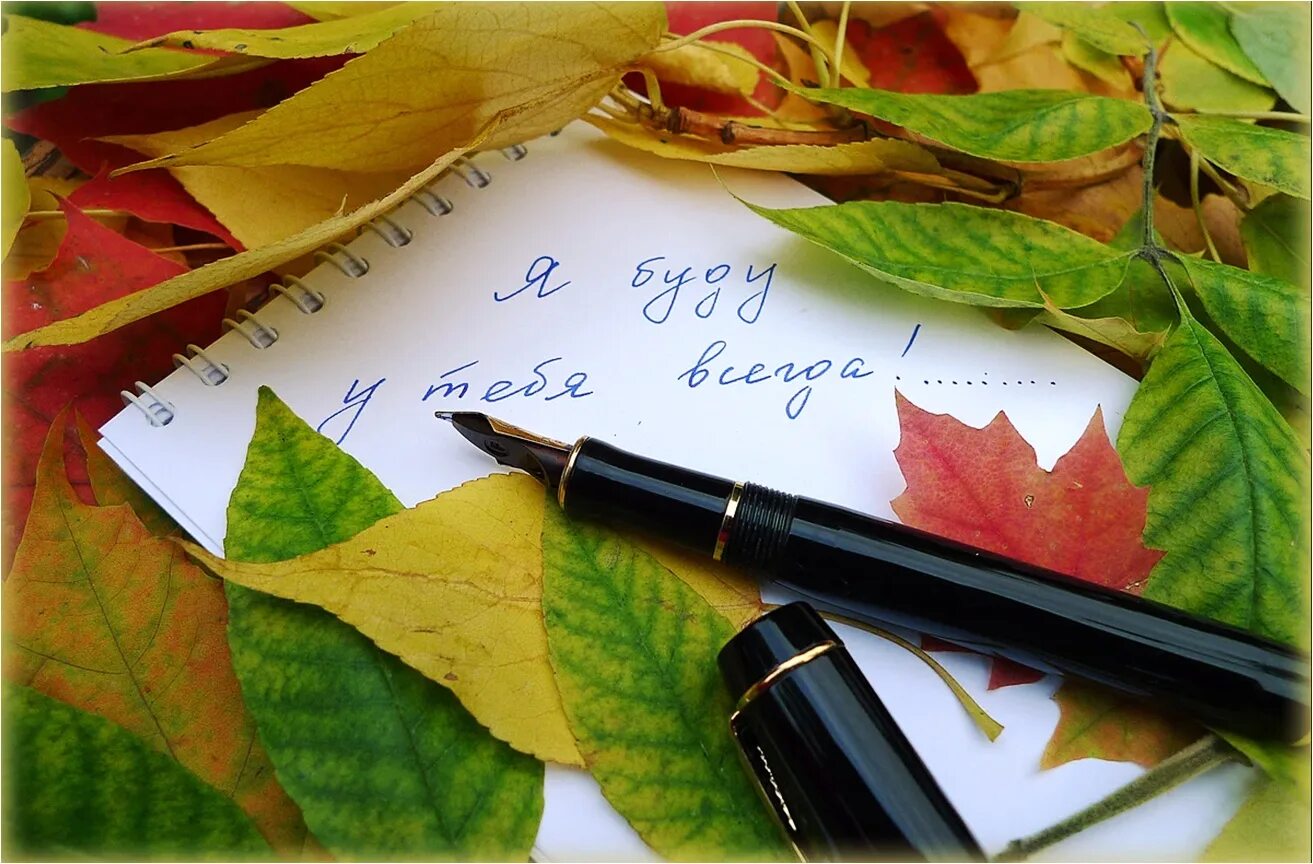 Я буду
у тебя всегда!...........